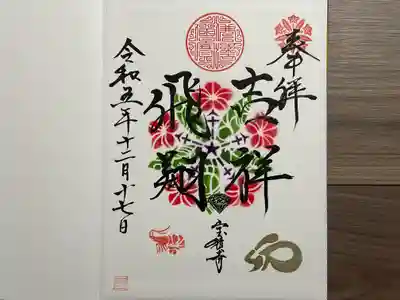 奉拝
吉祥
飛翔
宝徳寺
令和五年十二月十七日